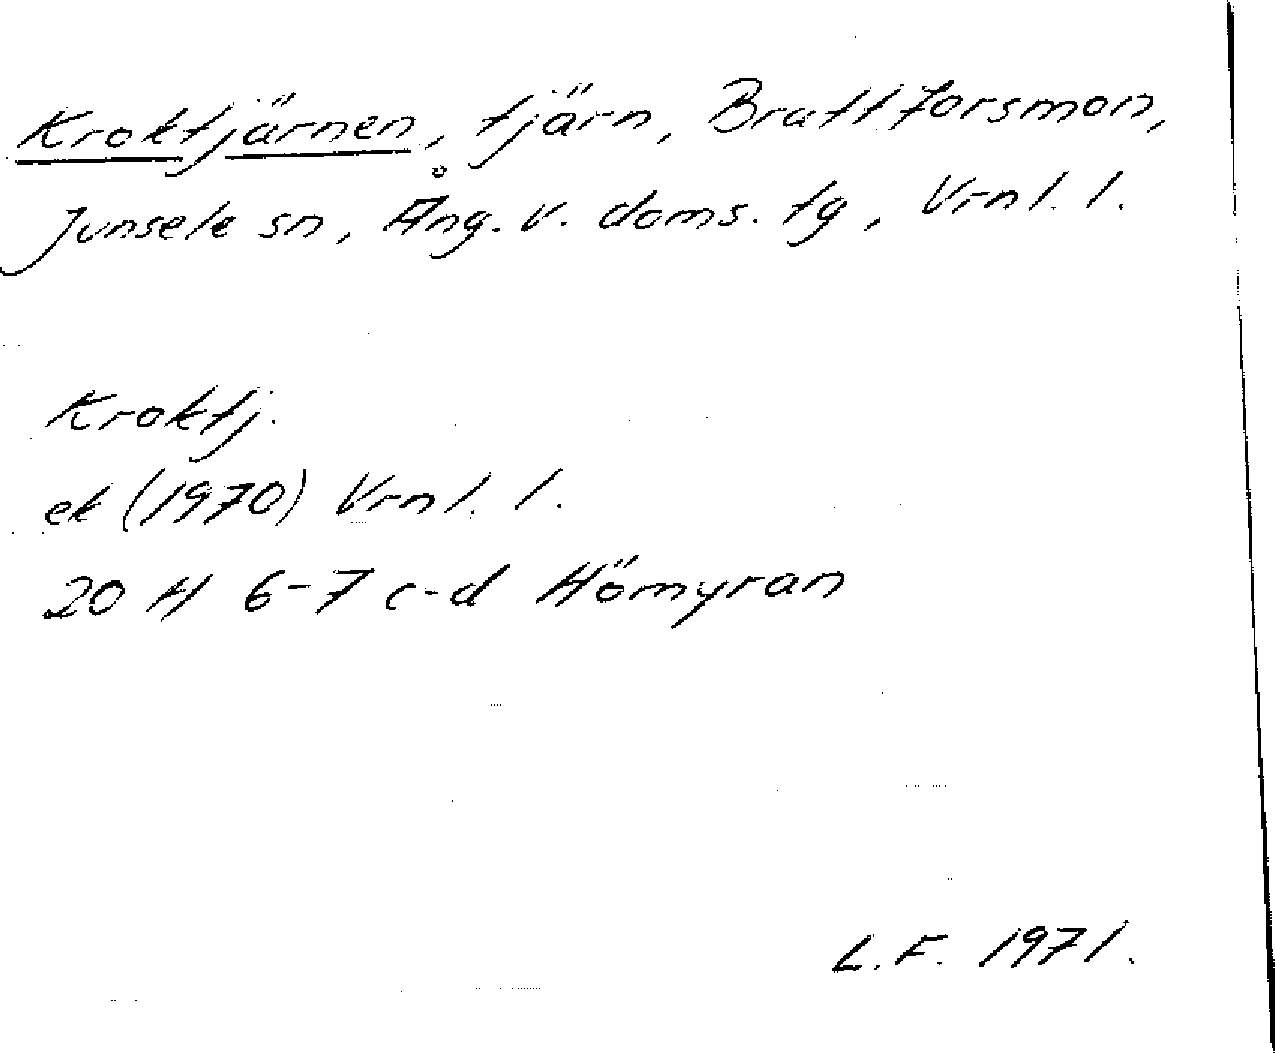 Kroktjärnen, tjärn, Brattforsmon,
Junsele sn, Ång. v. doms. tg, Vrnl. l.
Kroktj.
ek (1970) Vrnl. l.
20 H 6-7 c-d Hömyran
L.F. 1971.